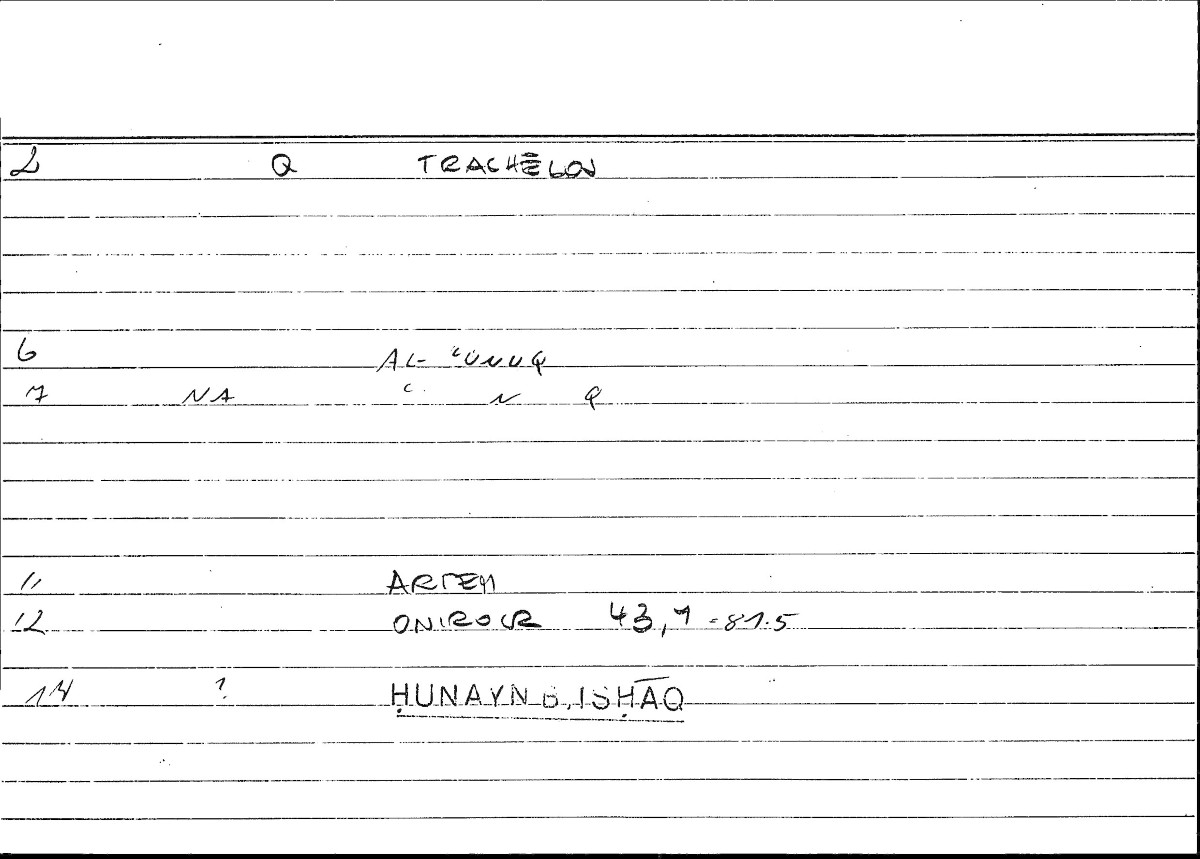 2 Q TRACHĒLOS
6 AL- ʿUNUQ
7 NA ʿ N Q
11 ARTEM
12 ONIROCR 43,1 = 81.5
14 ? ḤUNAYN B. ISḤĀQ